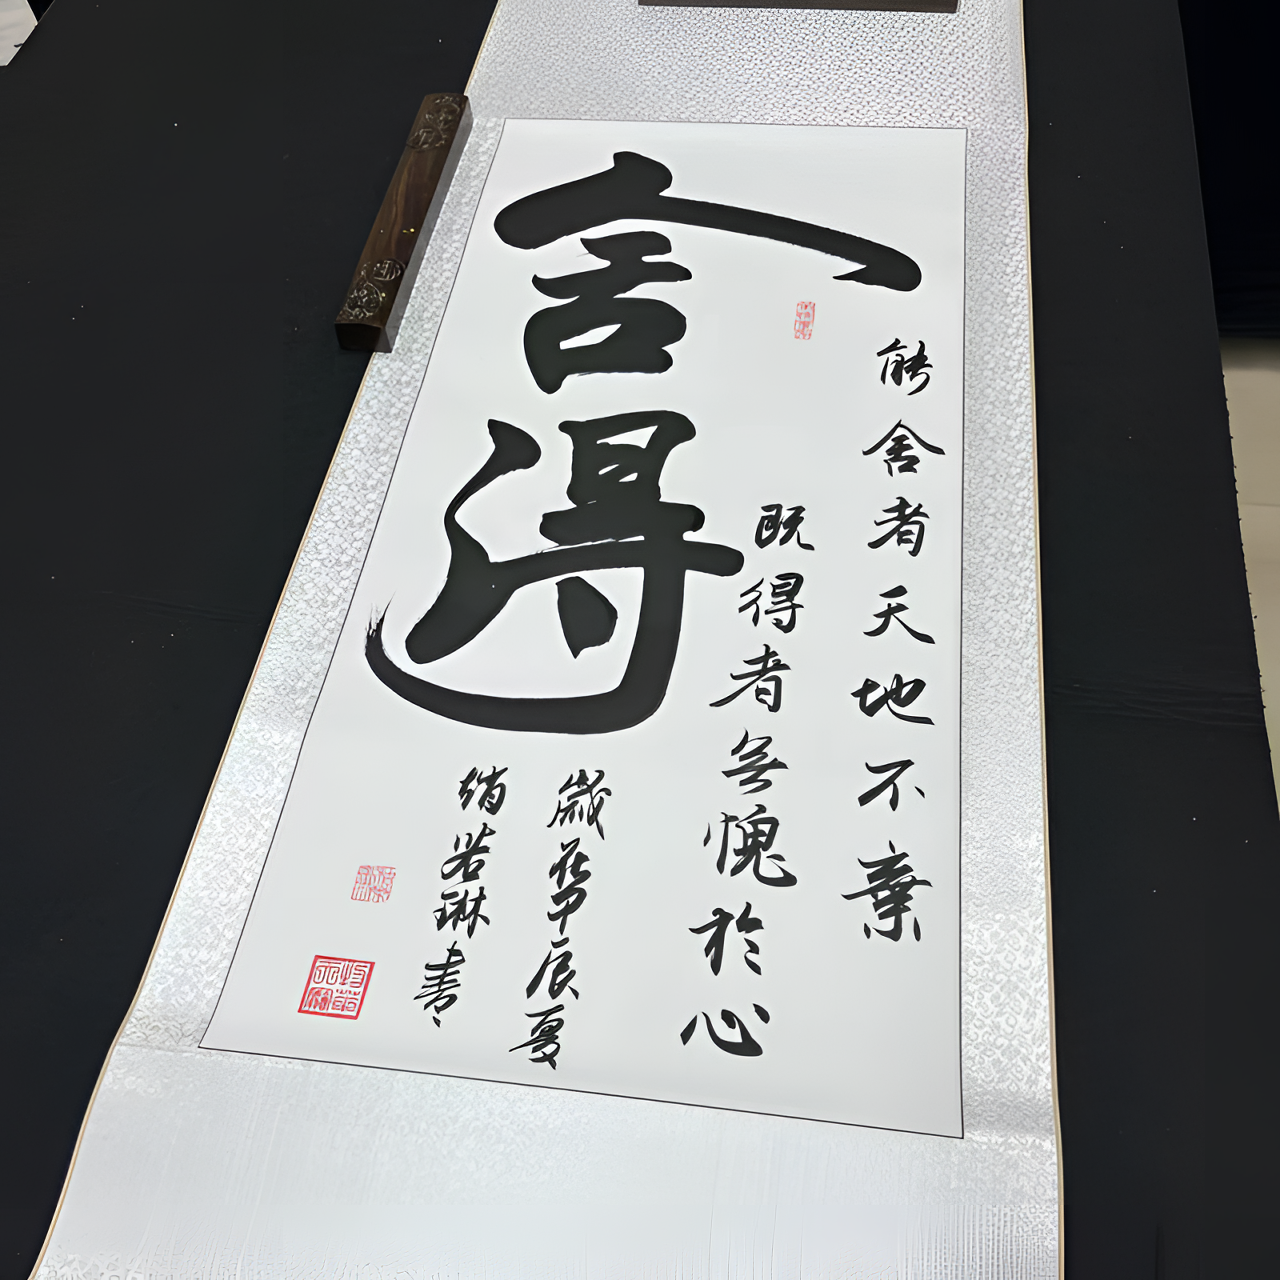 舍得
能舍者天地不棄
既得者無愧於心
歲在甲辰夏
若琳書